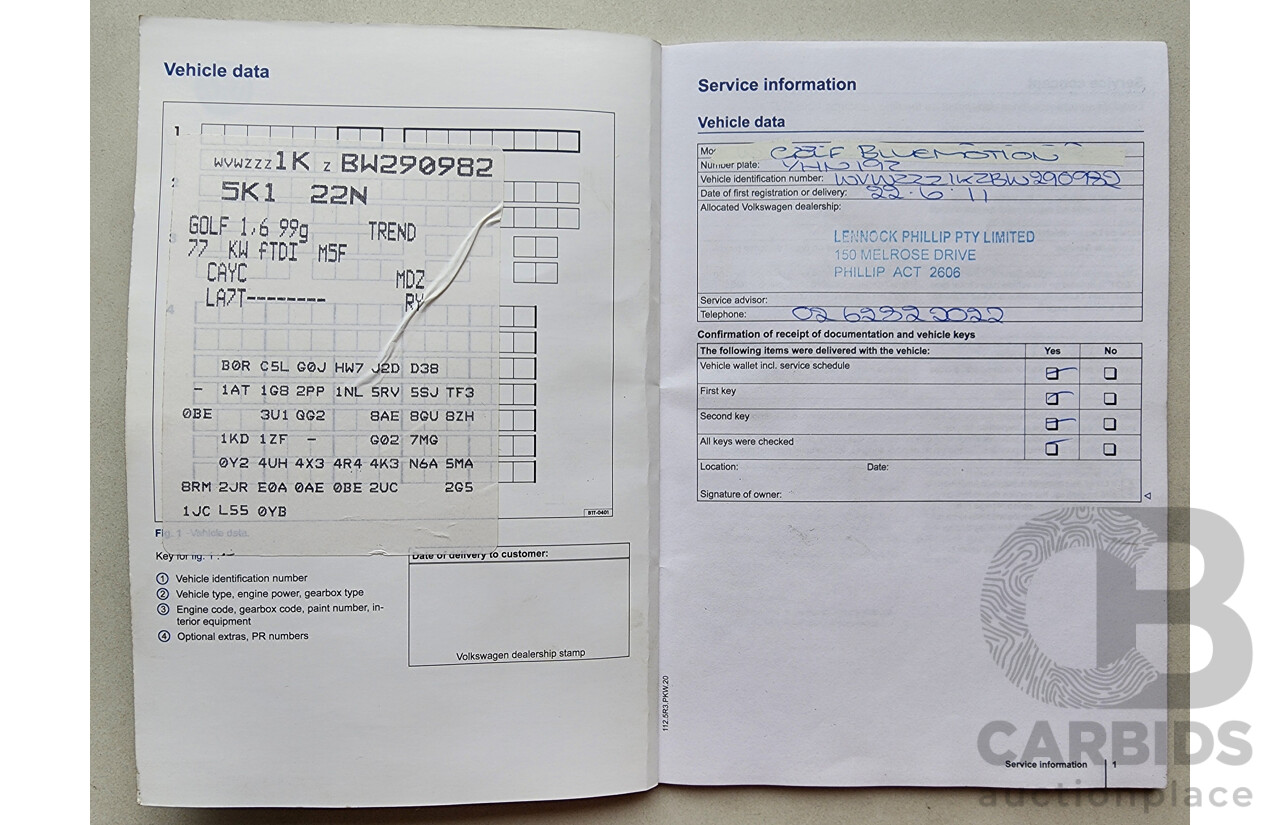 Vehicle data
1
WVWZZZ1K Z BW290982
5K1 22N
GOLF 1,6 99g TREND
77 KW fTDI M5F
CAYC MDZ
LA7T-------- RY
4
B0R C5L G0J HW7 J2D D38
- 1AT 1G8 2PP 1NL 5RV 5SJ TF3
0BE 3U1 QG2 8AE 8GU 8ZH
1KD 1ZF - G02 7MG
0Y2 4UH 4X3 4R4 4K3 N6A 5MA
8RM 2JR E0A 0AE 0BE 2UC 2G5
1JC L55 0YB
B1T-0401
Fig. 1 Vehicle data.
Key for fig. 1 :
1 Vehicle identification number
2 Vehicle type, engine power, gearbox type
3 Engine code, gearbox code, paint number, in-
terior equipment
4 Optional extras, PR numbers
Date of delivery to customer:
Volkswagen dealership stamp
Service information
Vehicle data
GOLF BLUEMOTION
Number plate: YHN19Z
Vehicle identification number: WVWZZZ1KZBW290982
Date of first registration or delivery: 22.6.11
Allocated Volkswagen dealership:
LENNOCK PHILLIP PTY LIMITED
150 MELROSE DRIVE
PHILLIP ACT 2606
Service advisor:
Telephone: 02 6282 2022
Confirmation of receipt of documentation and vehicle keys
The following items were delivered with the vehicle: Yes No
Vehicle wallet incl. service schedule
First key
Second key
All keys were checked
Location: Date:
Signature of owner:
112.5R3.PKW.20
Service information 1
CARBIDS
auctionplace